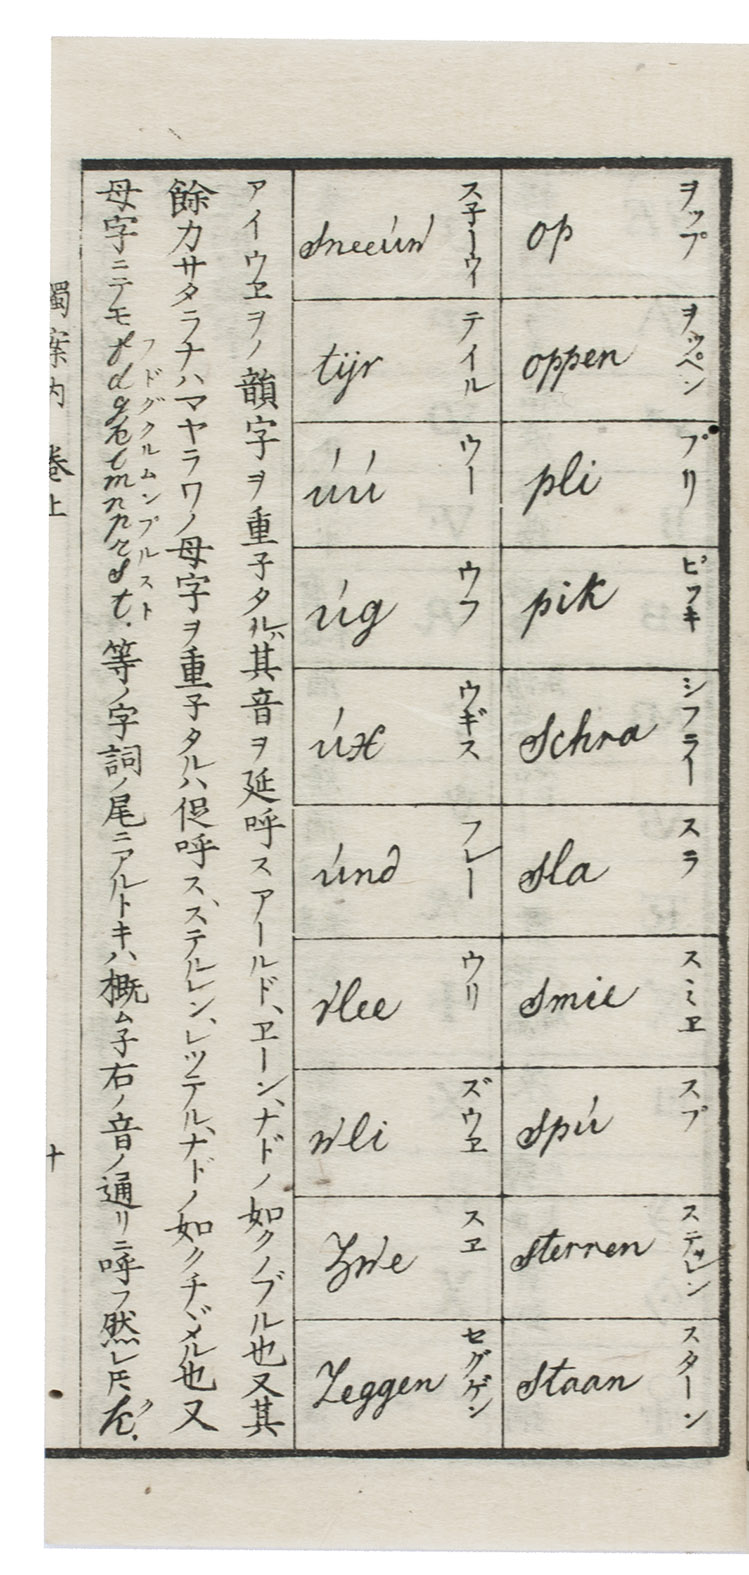 ヲップ
op
ヲッペン
oppen
プリ
pli
ピッキ
pik
シフラー
Schra
スラ
sla
スミヱ
smie
スプ
spú
ステルレン
sterren
スターン
staan
ス子ーウイ
sneeuw
テイル
tijr
ウー
úú
ウフ
úg
ウギス
úx
フレー
únd
ウリ
vlee
ズウヱ
wli
スヱ
Zwe
セグゲン
Zeggen
アイウヱヲノ韻字ヲ重子タルハ其音ヲ延呼スアールド、ヱーン、ナドノ如クノブル也又其
餘カサタラナハマヤラワノ母字ヲ重子タルハ促呼ス、ステルレン、レッテル、ナドノ如クチヾメル也又
フドグクルムンプルスト
母字ニテモf d g k l m n p r s t. 等ノ字詞ノ尾ニアルトキハ概ム子右ノ音ノ通リニ呼フ然レ𪜈
案内 巻上
十